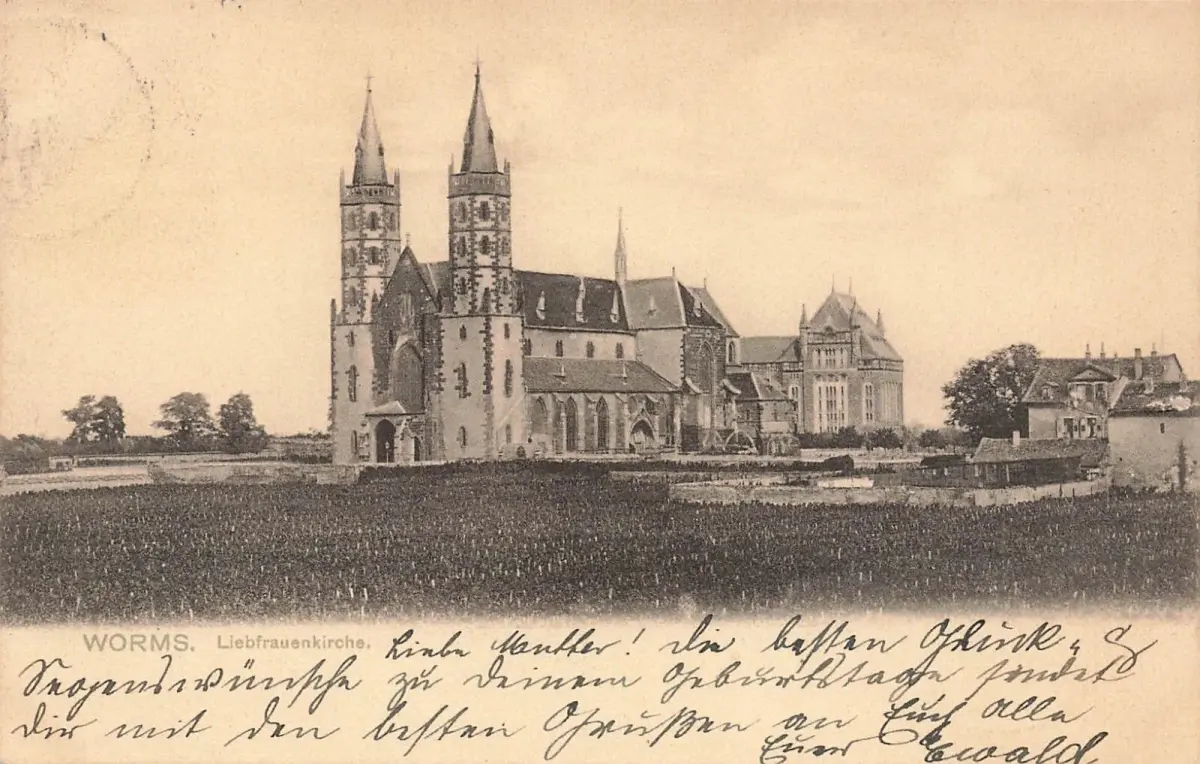 WORMS. Liebfrauenkirche.
Liebe Mutter! die besten Glück- &
Segenswünsche zu deinem Geburtstage sendet
dir mit den besten Grüßen an Euch alle
Euer Ewald